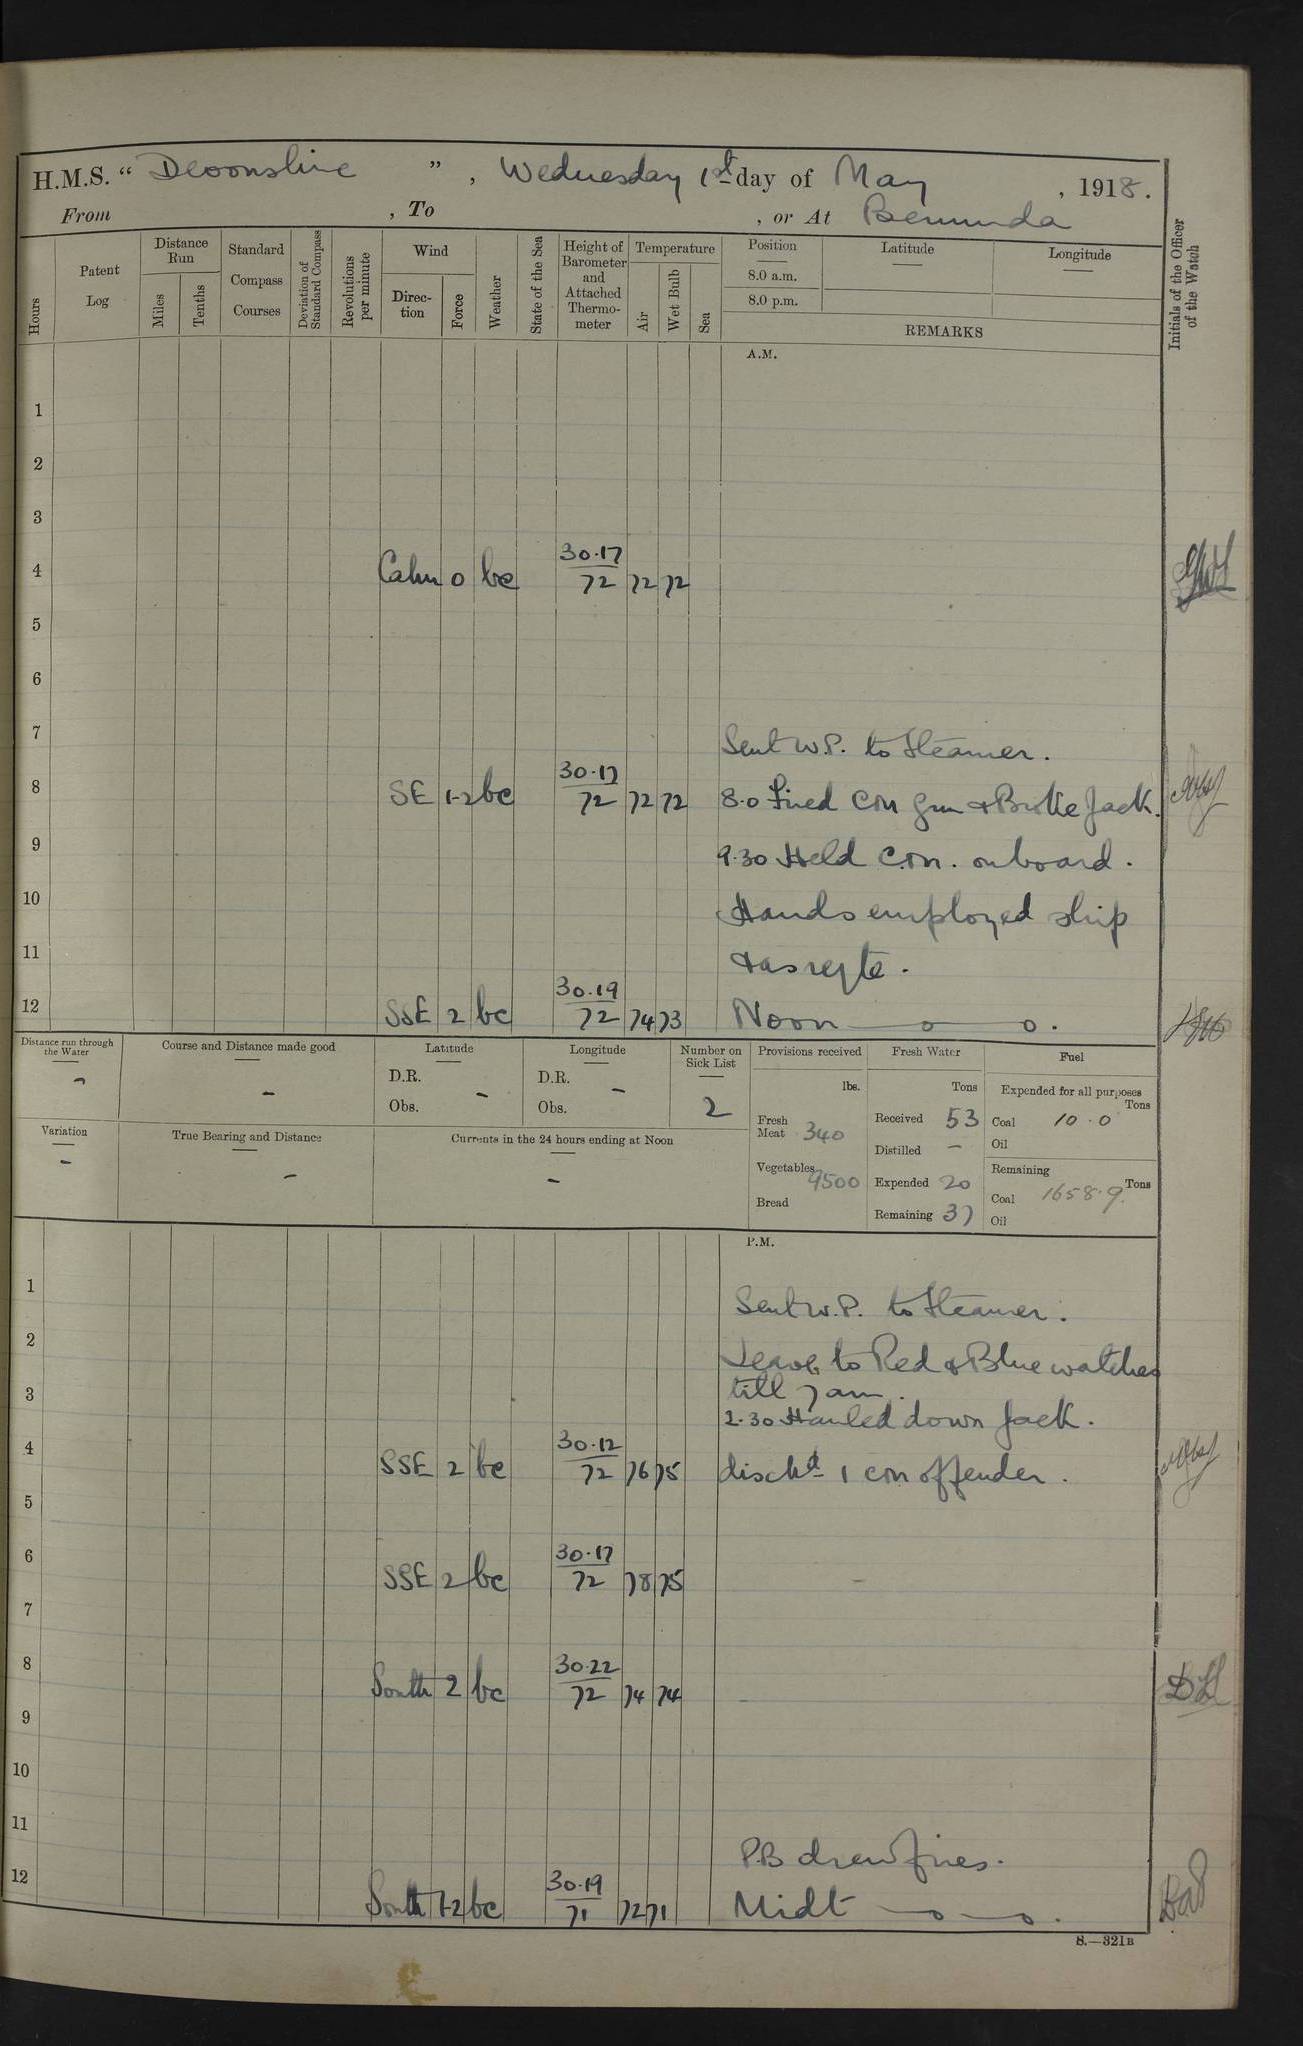 H.M.S. “ Devonshire ” , Wednesday 1st day of May , 1918.
From , To , or At Bermuda
Hours
Patent Log
Distance Run
Miles
Tenths
Standard Compass Courses
Deviation of Standard Compass
Revolutions per minute
Wind
Direc-tion
Force
Weather
State of the Sea
Height of Barometer and Attached Thermo-meter
Temperature
Air
Wet Bulb
Sea
Position
8.0 a.m.
8.0 p.m.
Latitude
Longitude
REMARKS
Initials of the Officer of the Watch
A.M.
1
2
3
4 Calm 0 bc 30.17 72 72 72
5
6
7 Sent W.P. to Steamer.
8 SE 1-2 bc 30.17 72 72 72 8.0 Fired Con Gun & Broke Jack.
9 9.30 Held C.M. onboard.
10 Hands employed ship
11 & as reqte.
12 SSE 2 bc 30.19 72 74 73 Noon —o—o.
Distance run through the Water
-
Course and Distance made good
-
Latitude
D.R.
Obs. -
Longitude
D.R.
Obs. -
Number on Sick List
2
Provisions received
lbs.
Fresh Meat 340
Vegetables 9500
Bread
Fresh Water
Tons
Received 53
Distilled -
Expended 20
Remaining 37
Fuel
Expended for all purposes
Tons
Coal 10.0
Oil
Remaining
Tons
Coal 1658.9
Oil
Variation
-
True Bearing and Distance
-
Currents in the 24 hours ending at Noon
-
P.M.
1 Sent W.P. to Steamer.
2 Leave to Red & Blue watches
3 till 7 am.
2.30 Hauled down Jack.
4 SSE 2 bc 30.12 72 76 75 dischd 1 Con offender.
5
6 SSE 2 bc 30.17 72 78 75
7
8 South 2 bc 30.22 72 74 74
9
10
11 P.B drew fires.
12 South 1-2 bc 30.19 71 72 71 Midt —o—o.
S.—321B